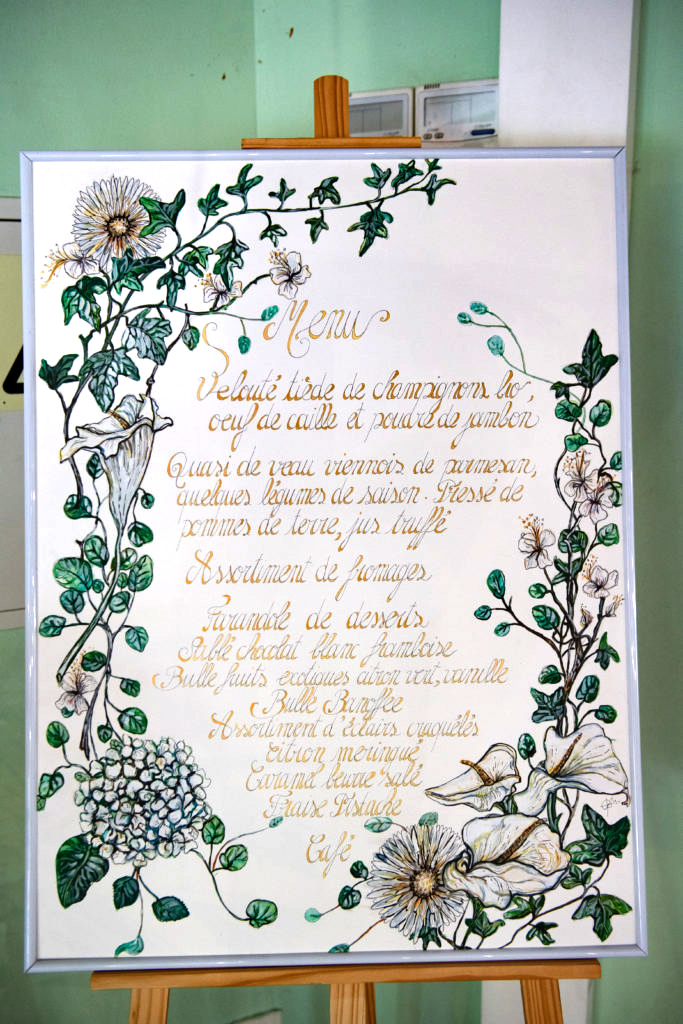 Menu
Velouté tiède de champignons bio,
oeuf de caille et poudre de jambon
Quasi de veau viennois de parmesan,
quelques légumes de saison. Pressé de
pommes de terre, jus truffé
Assortiment de fromages
Farandole de desserts
Sablé chocolat blanc framboise
Bulle fruits exotiques citron vert, vanille
Bulle Banoffee
Assortiment d'éclairs craquelés
Citron meringué
Caramel beurre salé
Fraise Pistache
Café